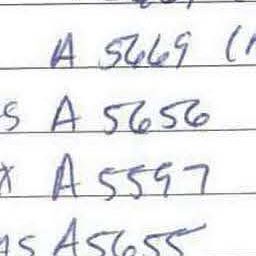 A 5669 (
S A 5656
x A 5597
AS A5655